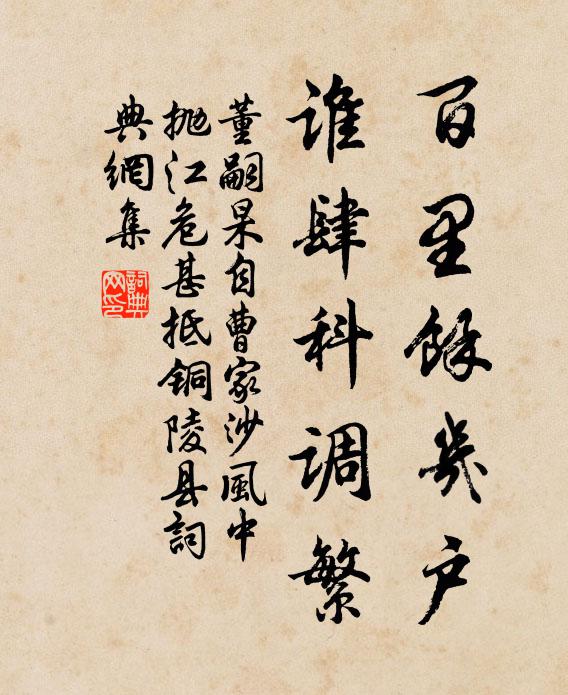 百里餘幾户
誰肆科调繁
董嗣杲自曹家沙風中
抛江危甚抵铜陵县詞
典網集
詞典
网印